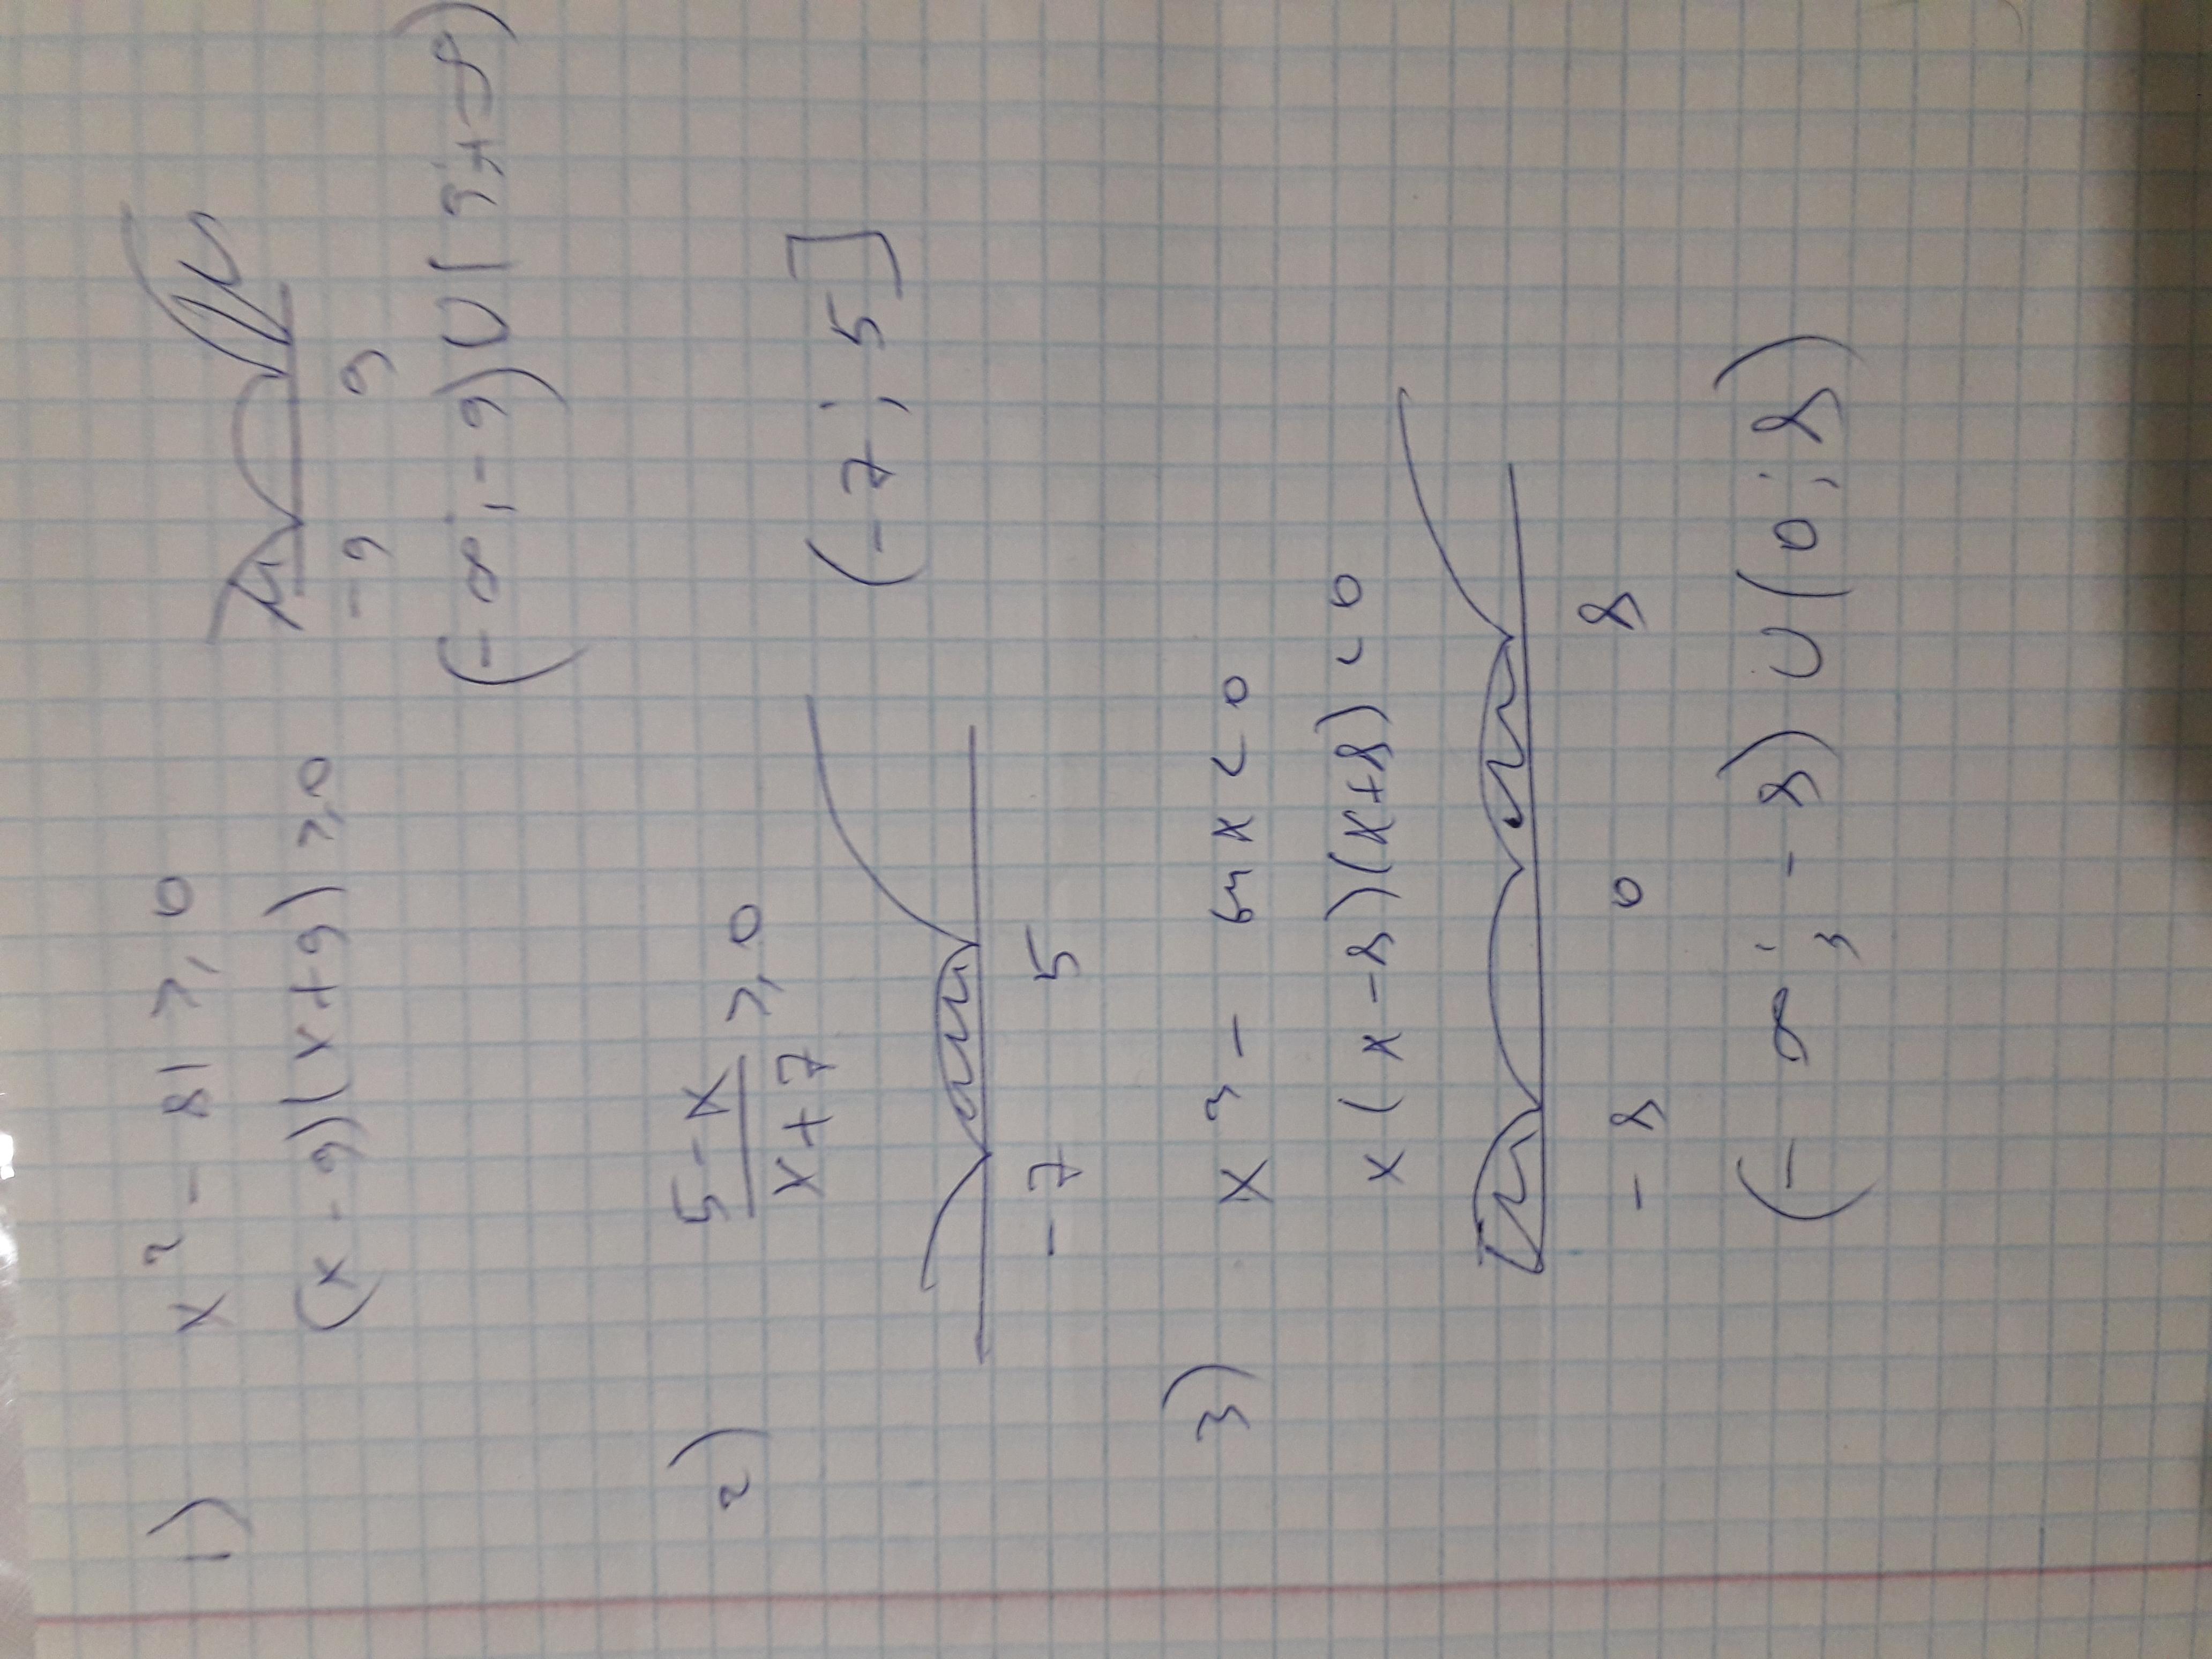 1) x² - 81 ⩾ 0
(x - 9)(x + 9) ⩾ 0
-9 9
(-∞; -9) ∪ [9; +∞)
2) (5 - x)/(x + 7) ⩾ 0
-7 5
(-7; 5]
3) x³ - 64x < 0
x(x - 8)(x + 8) < 0
-8 0 8
(-∞; -8) ∪ (0; 8)